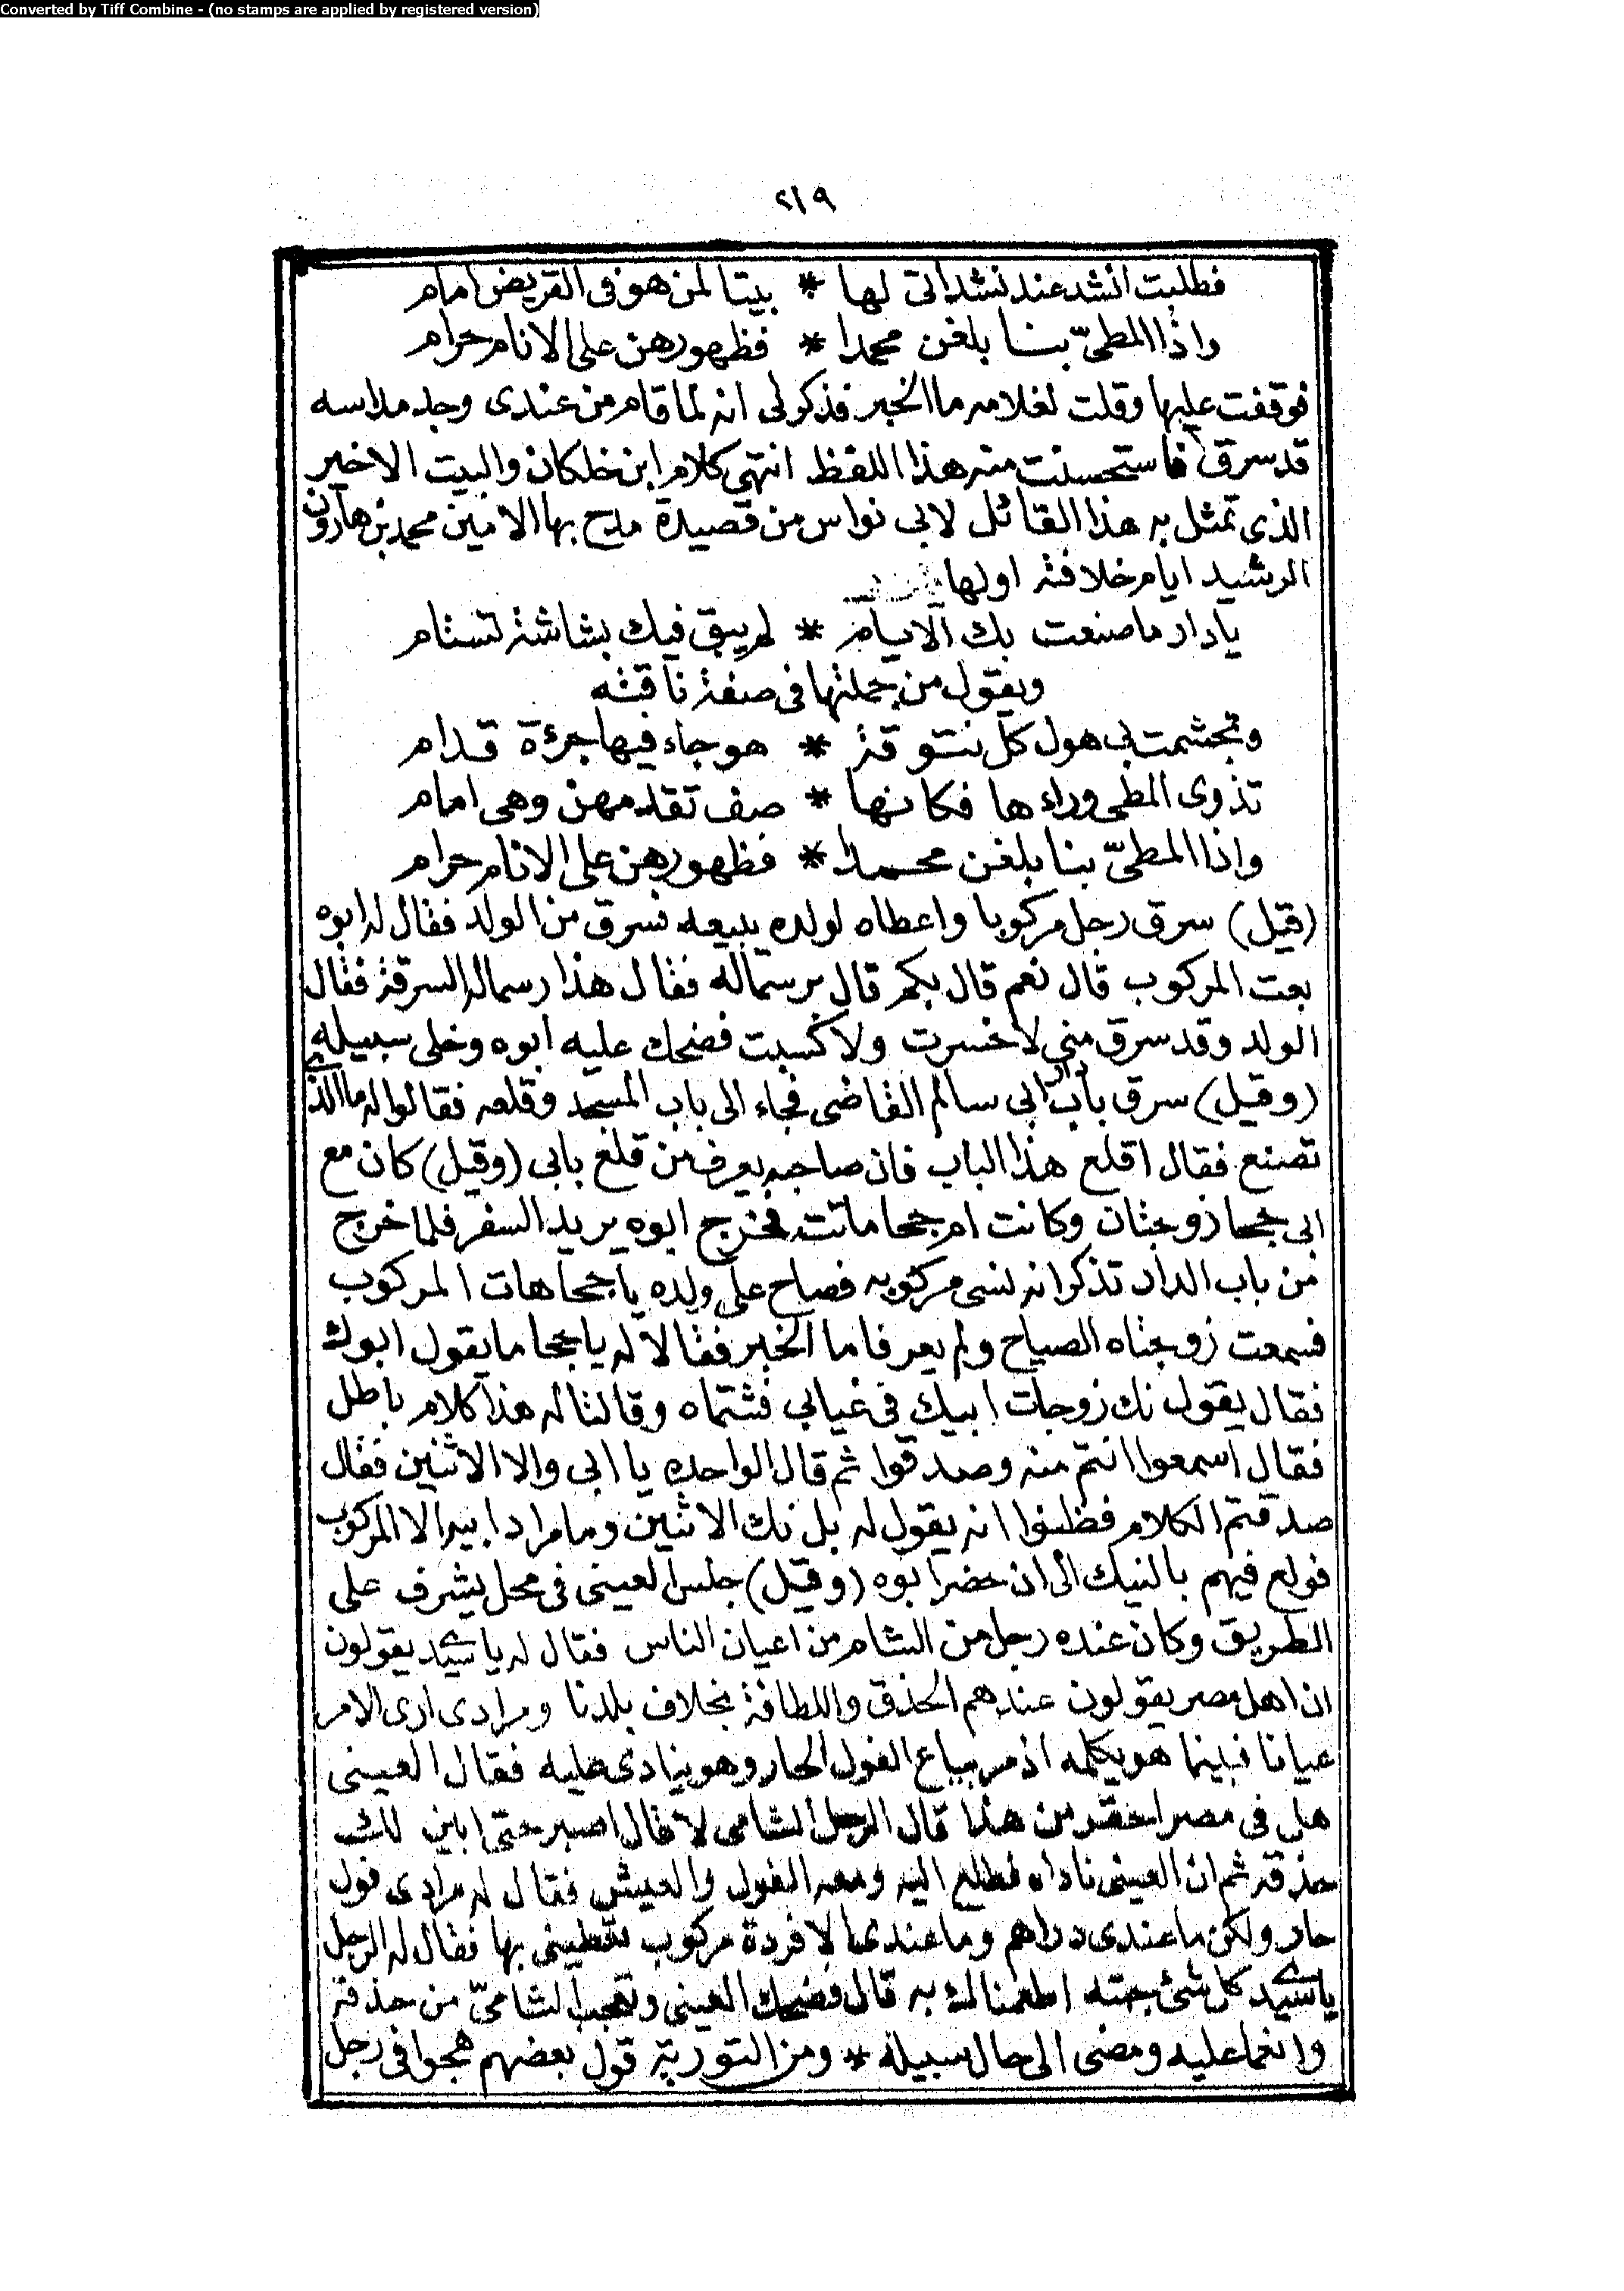 Converted by Tiff Combine - (no stamps are applied by registered version)
٢١٩
فطلبت انشد عند نشداتى لها * بيتا لمن هو فى القريض امام
واذا المطىّ بنا بلغن محمدا * فظهورهن على الانام حرام
فوقفت عليها وقلت لغلامه ما الخبر فذكر لى انه لما قام من عندى وجد ملاسه
قد سرق فاستحسنت منه هذا اللفظ انتهى كلام ابن خلكان والبيت الاخير
الذى تمثل به هذا القائل لابى نواس من قصيدة مدح بها الامين محمد بن هارون
الرشيد ايام خلافته اولها
يا دار ما صنعت بك الايام * لم يبق فيك بشاشة تستام
ويقول من جملتها فى صفة ناقته
وتجشمت بى هول كل تنوفة * هوجاء فيها جرءة قدام
تذوى المطى وراءها فكانها * صف تقدمهن وهى امام
واذا المطىّ بنا بلغن محمدا * فظهورهن على الانام حرام
(قيل) سرق رجل مركوبا واعطاه لولده يبيعه فسرق من الولد فقال له ابوه
بعت المركوب قال نعم قال بكم قال برسماله فقال هذا رسماله السرقة فقال
الولد وقد سرق منى لا خسرت ولا كسبت فضحك عليه ابوه وخلى سبيله
(وقيل) سرق باب دار ابى سالم القاضى فجاء الى باب المسجد وقلعه فقالوا له ما الذى
تصنع فقال اقلع هذا الباب فان صاحبه يعرف من قلع بابى (وقيل) كان مع
ابى جحا زوجتان وكانت ام جحا ماتت فخرج ابوه يريد السفر فلما خرج
من باب الدار تذكر انه نسى مركوبه فصاح على ولده يا جحا هات المركوب
فسمعت زوجتاه الصياح ولم يعرفا ما الخبر فقالا له يا جحا ما يقول ابوك
فقال يقول نك زوجات ابيك فى غيابى فشتماه وقالتا له هذا كلام باطل
فقال اسمعوا انتم منه وصدقوا ثم قال الواحده يا ابى والا الاثنين فقال
صدقتم الكلام فظنوا انه يقول له بل نك الاثنين وما مراد ابيه الا المركوب
فولع فيهم بالنيك الى ان حضر ابوه (وقيل) جلس العينى فى محل يشرف على
الطريق وكان عنده رجل من الشام من اعيان الناس فقال له يا سيدى يقولون
ان اهل مصر يقولون عندهم الحذق واللطافة بخلاف بلدنا ومرادى ارى الامر
عيانا فبينما هو يكلمه اذ مر بياع الفول الحار وهو ينادى عليه فقال العينى
هل فى مصر احقر من هذا قال الرجل الشامى لا قال اصبر حتى ابين لك
حذقه ثم ان العينى ناداه فطلع اليه ومعه الفول والعيش فقال له مرادى فول
حار ولكن ما عندى دراهم وما عندى الا فردة مركوب تعطينى بها فقال له الرجل
يا سيدى كل شئ جئته اطعمنا لك به قال فضحك العينى وتعجب الشامىّ من حذقه
وانعما عليه ومضى الى حال سبيله * ومن التورية قول بعضهم هجوا فى رجل